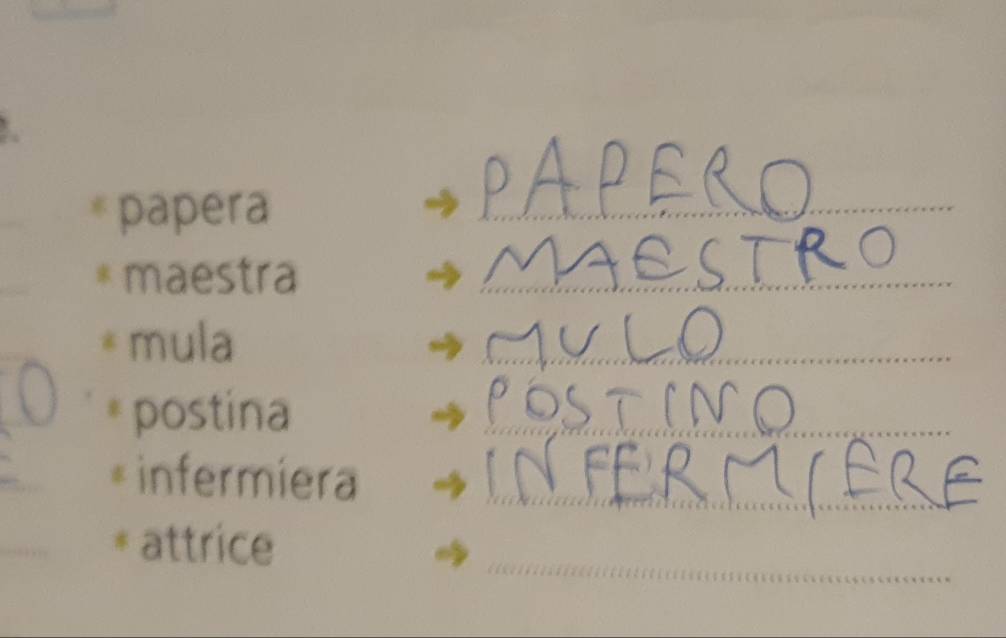 papera → PAPERO
maestra → MAESTRO
mula → MULO
postina → POSTINO
infermiera → INFERMIERE
attrice →